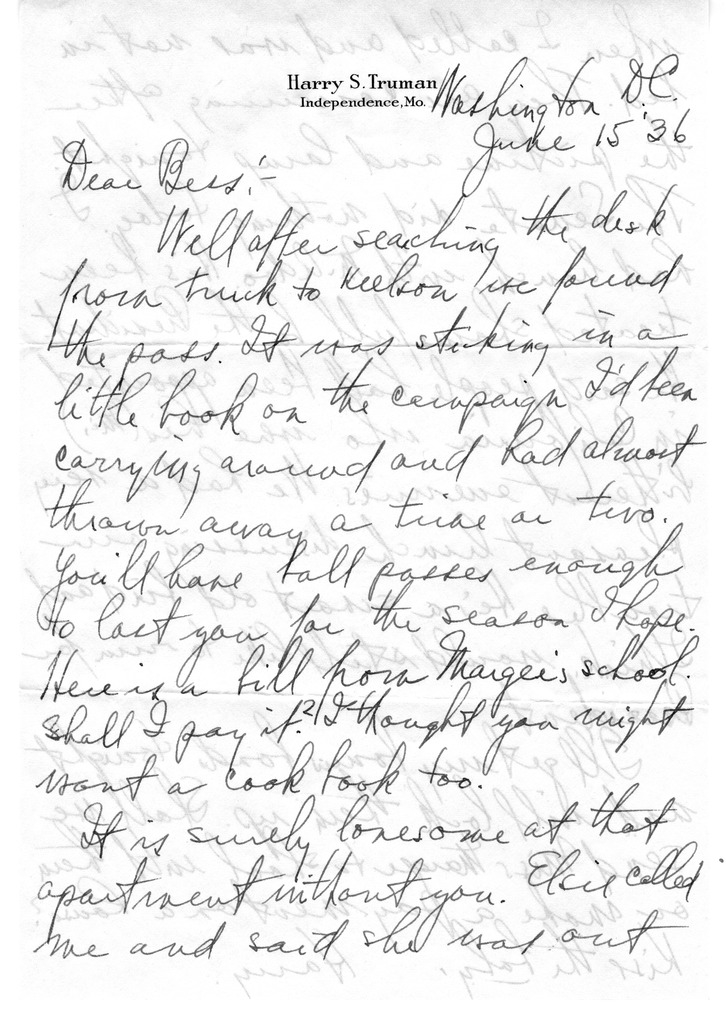 Harry S. Truman
Independence, Mo.
Washington D.C.
June 15 '36
Dear Bess:-
Well after seaching the desk
from truck to Keelson we found
the pass. It was sticking in a
little book on the campaign I'd been
carrying around and had almost
thrown away a time or two.
You'll have ball passes enough
to last you for the season I hope.
Here is a bill from Margie's school.
Shall I pay it? I thought you might
want a cook book too.
It is surely lonesome at that
apartment without you. Elsie called
me and said she was out